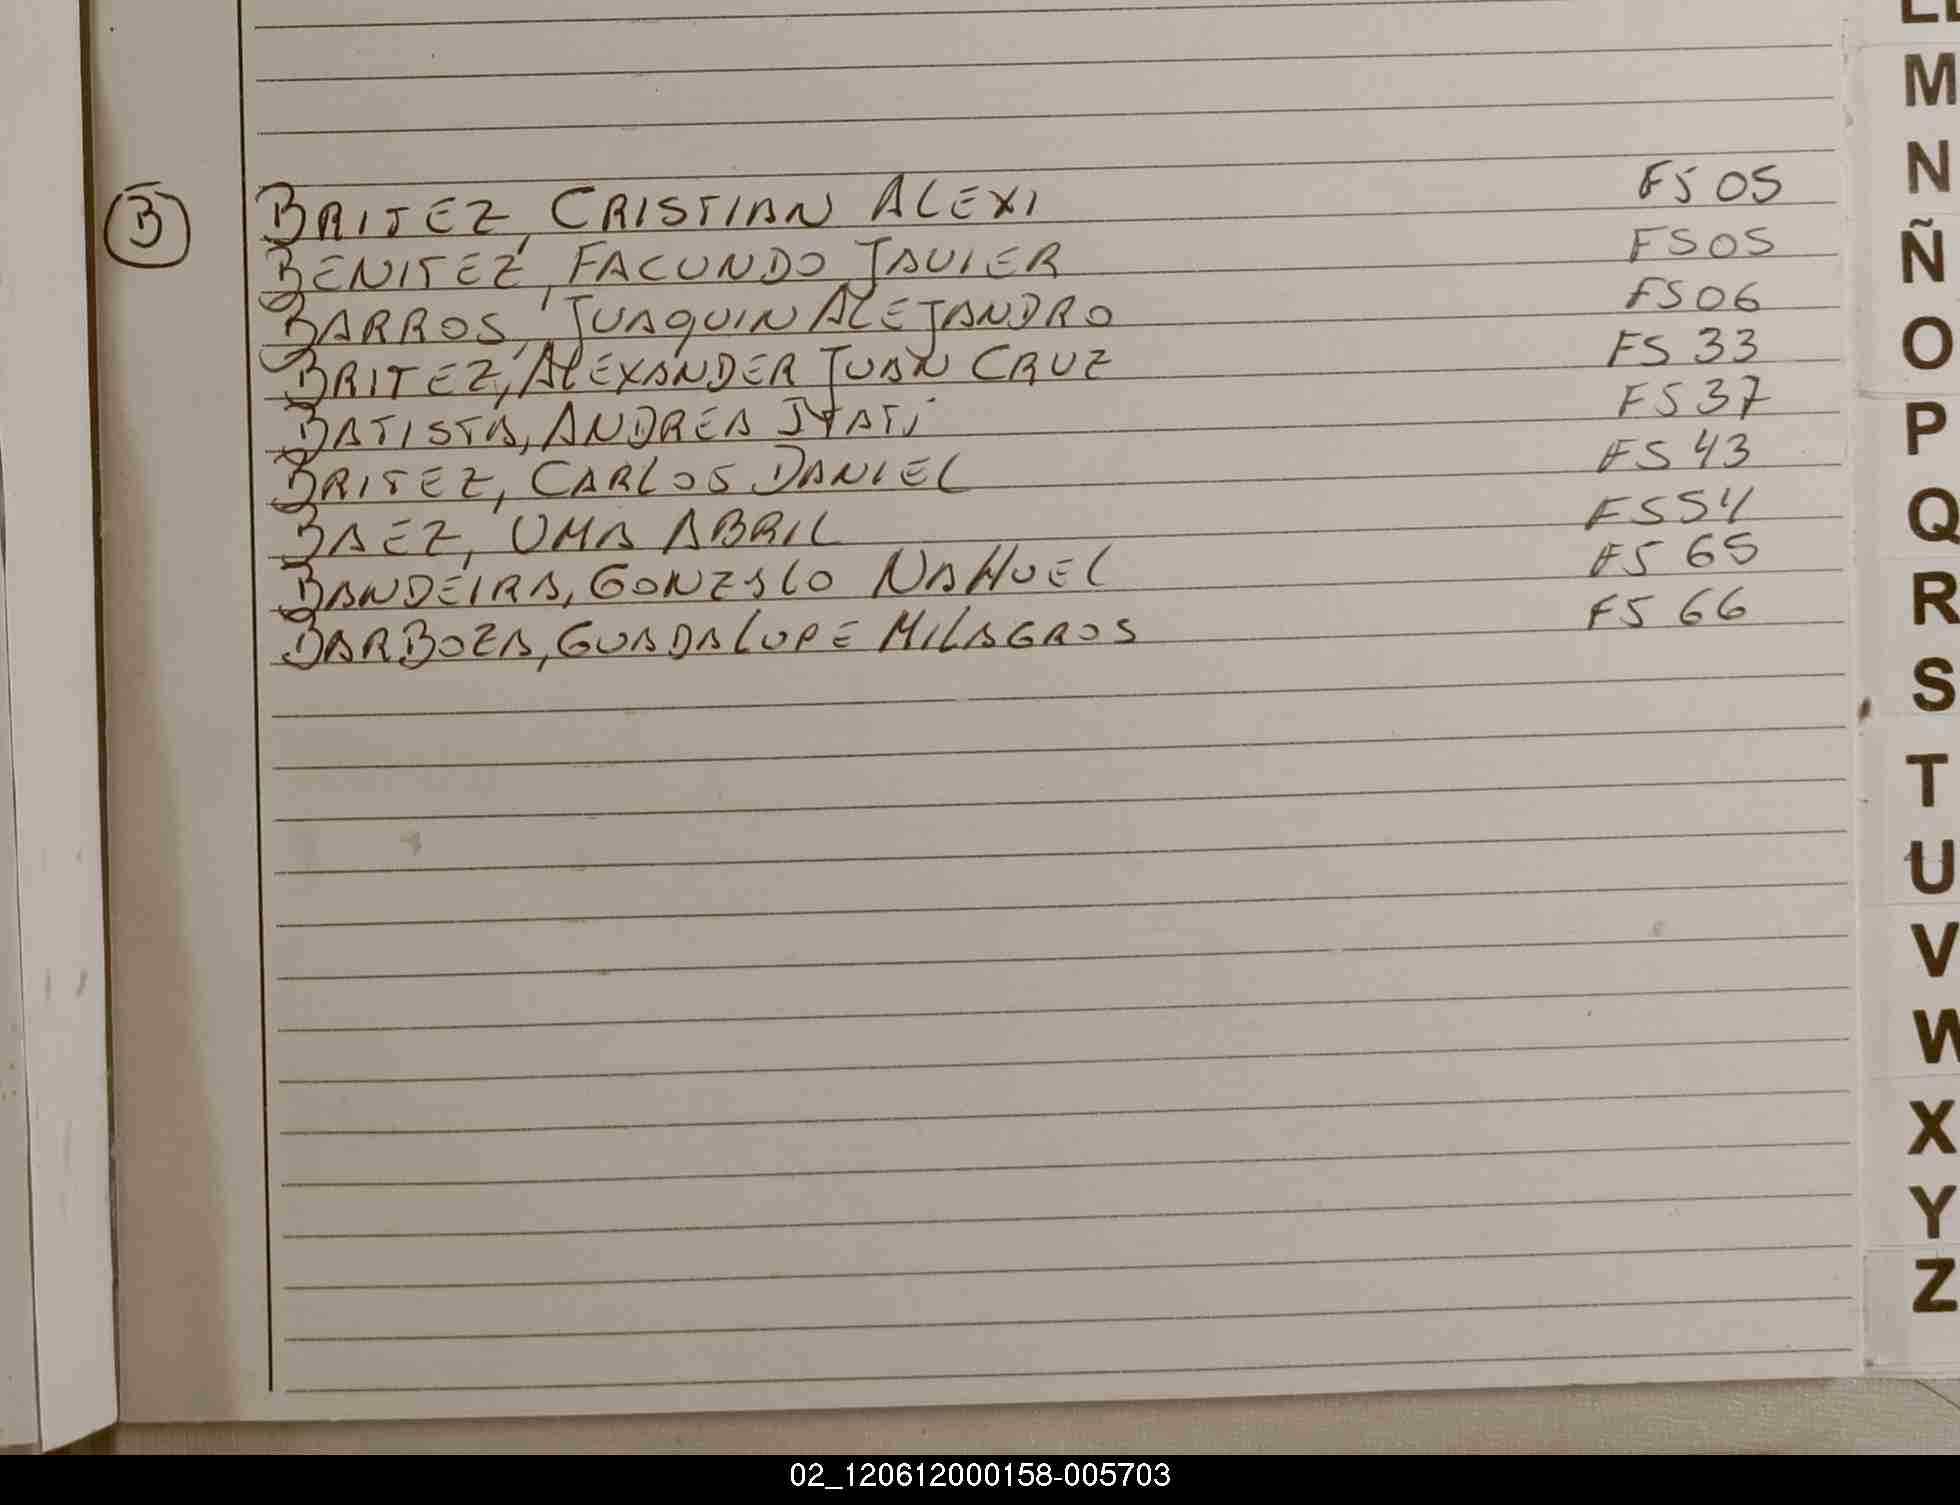 B
BRITEZ, CRISTIAN ALEXI FS 05
BENITEZ, FACUNDO JAVIER FS 05
BARROS, JUAQUIN ALEJANDRO FS 06
BRITEZ, ALEXANDER JUAN CRUZ FS 33
BATISTA, ANDREA ITATI FS 37
BRITEZ, CARLOS DANIEL FS 43
BAEZ, UMA ABRIL FS 54
BANDEIRA, GONZALO NAHUEL FS 65
BARBOZA, GUADALUPE MILAGROS FS 66
LL
M
N
Ñ
O
P
Q
R
S
T
U
V
W
X
Y
Z
02_120612000158-005703